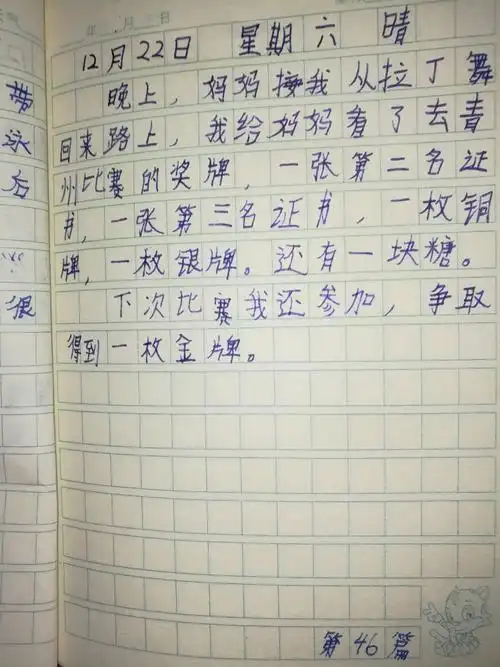 年 月 日
12月22日 星期六 晴
晚上，妈妈接我从拉丁舞
回来路上，我给妈妈看了去青
州比赛的奖牌，一张第二名证
书，一张第三名证书，一枚铜
牌，一枚银牌。还有一块糖。
下次比赛我还参加，争取
得到一枚金牌。
第46篇
带
泳
后
很